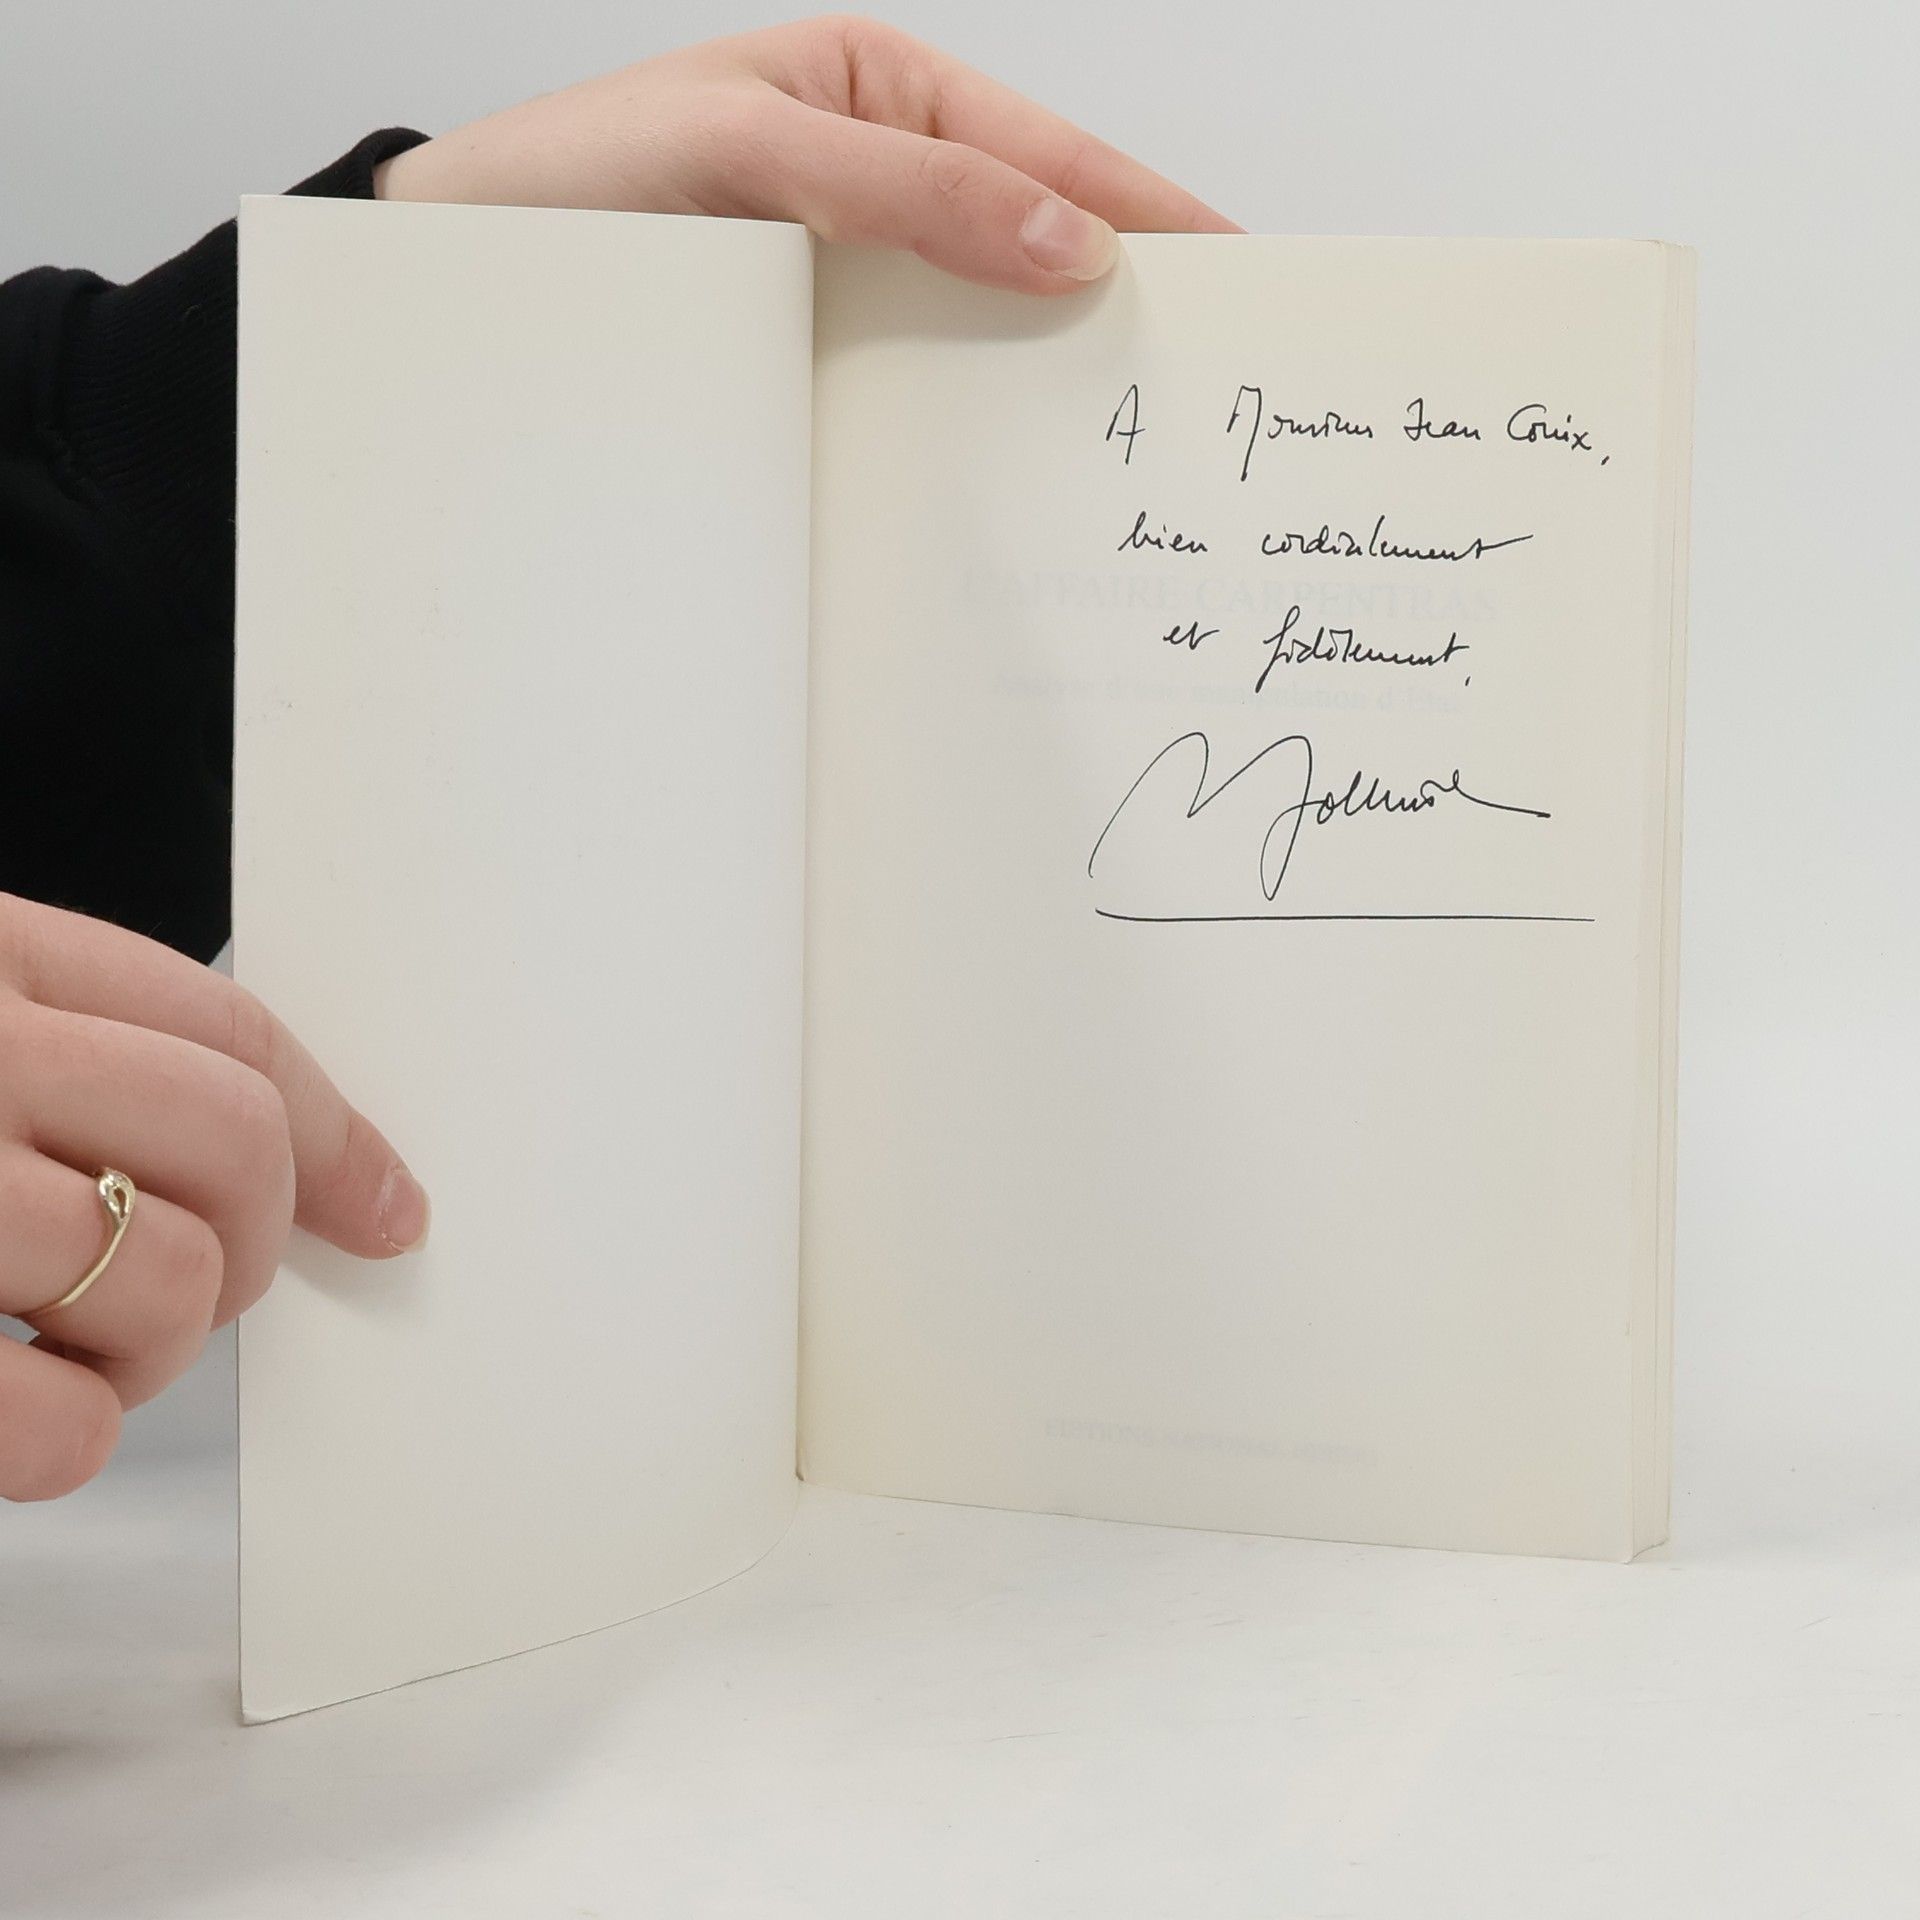 A Monsieur Jean Conix,
bien cordialement
L'AFFAIRE CARPENTRAS
et fidèlement,
Analyse d'une manipulation d'Etat